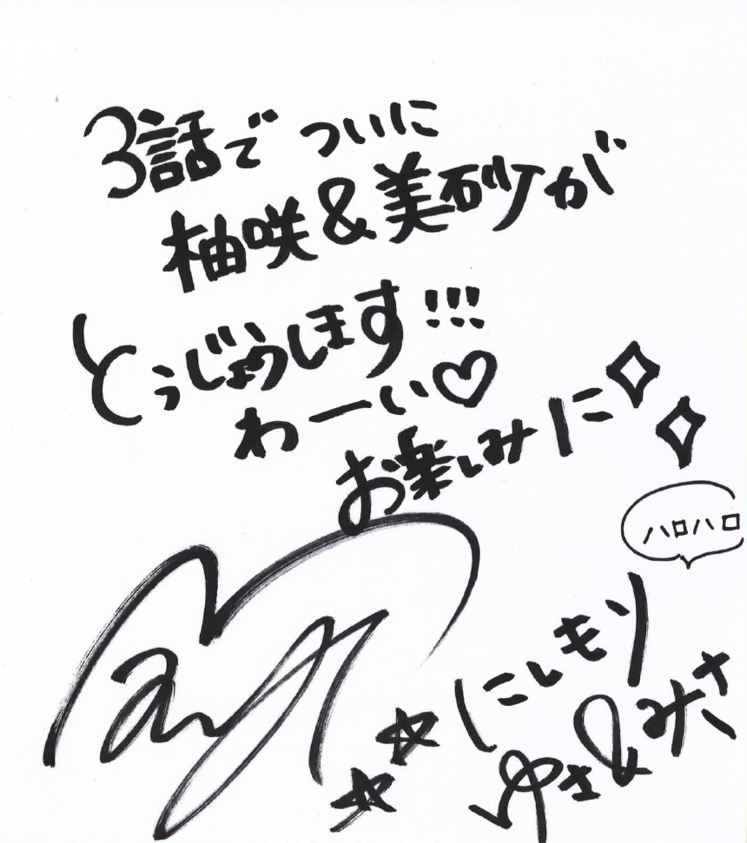 3話でついに
柚咲&美砂が
とうじょうします!!!
わーい♡
お楽しみに
ハロハロ
にしもり
ゆさ&みさ